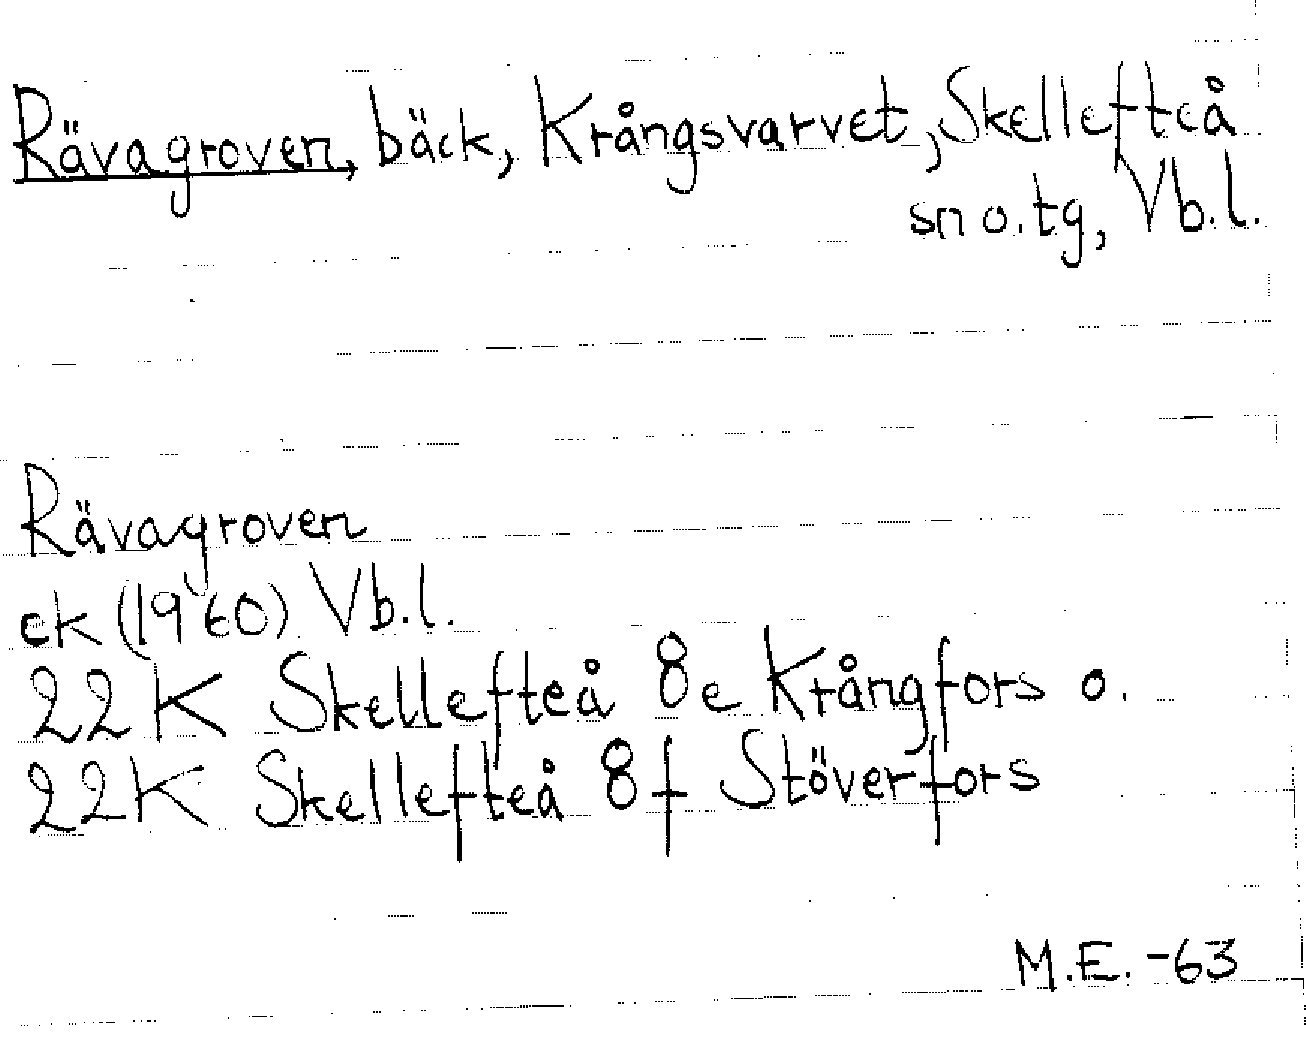 Rävagroven, bäck, Krångsvarvet, Skellefteå
sn o. tg, Vb.l.
Rävagroven
ek (1960) Vb.l.
22K Skellefteå 8e Krångfors o.
22K Skellefteå 8f Stöverfors
M.E. -63